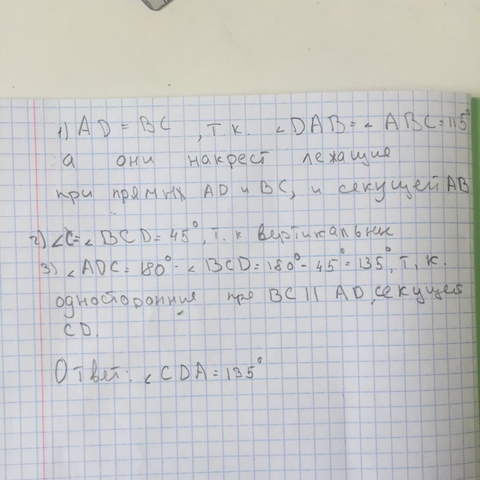 1) AD = BC , т.к. ∠DAB = ∠ABC = 115°
а они накрест лежащие
при прямых AD и BC, и секущей AB
2) ∠C = ∠BCD = 45°, т.к вертикальные
3) ∠ADC = 180° - ∠BCD = 180° - 45° = 135°, т.к.
односторонние при BC || AD, секущей
CD.
Ответ: ∠CDA = 135°